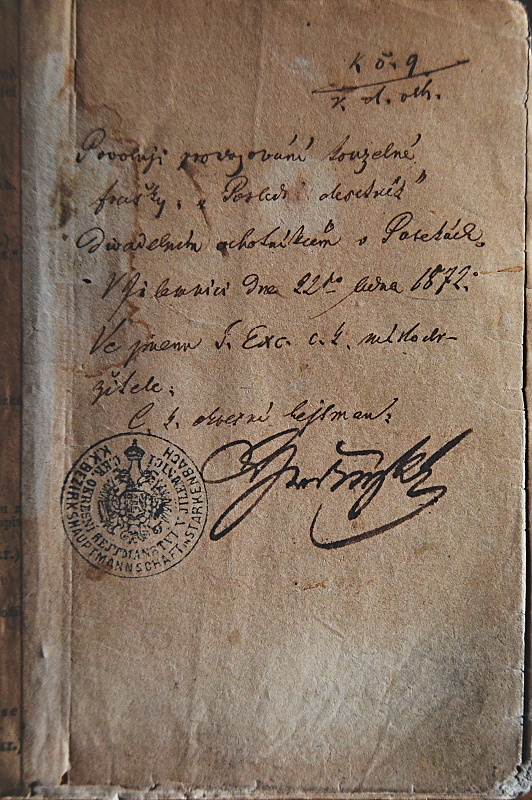 k č. 9
Povoluji provozování kouzelné
frašky, „Poslední desetník“
divadelním ochotníkům v Pasekách.
V Jilemnici dne 22ho ledna 1872.
Ve jménu J. Exc. c. k. místodr-
žitele:
C. k. okresní hejtman:
C. K. OKRESNÍ HEJTMANSTVÍ V JILEMNICI
K.K. BEZIRKSHAUPTMANNSCHAFT IN STARKENBACH